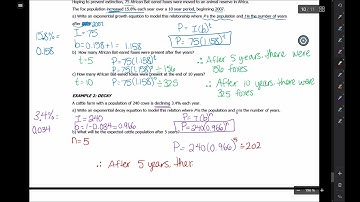 Hoping to prevent extinction, 75 African Bat-eared foxes were moved to an animal reserve in Africa.
The fox population increased 15.8% each year over a 10 year period, beginning 2007.
a) Write an exponential growth equation to model this relationship where P is the population and t is the number of years
after 2007.
15.8%
0.158
I=75
b=0.158+1=1.158
P=I(b)^t
P=75(1.158)^t
b) How many Bat-eared foxes were present after five years?
t=5
P=75(1.158)^t
P=75(1.158)^5 ≐ 156
∴ After 5 years, there were
156 foxes
c) How many Bat-eared foxes were present at the end of 10 years?
t=10
P=75(1.158)^10 ≐ 325
∴ After 10 years, there were
325 foxes
EXAMPLE 2: DECAY
A cattle farm with a population of 240 cows is declining 3.4% each year.
a) Write an exponential decay equation to model this relation where P is the population and n is the number of years.
3.4%
0.034
I=240
b=1-0.034=0.966
P=I(b)^n
P=240(0.966)^n
b) What will be the expected cattle population after 5 years?
n=5
P=240(0.966)^5 ≐ 202
∴ After 5 years, ther